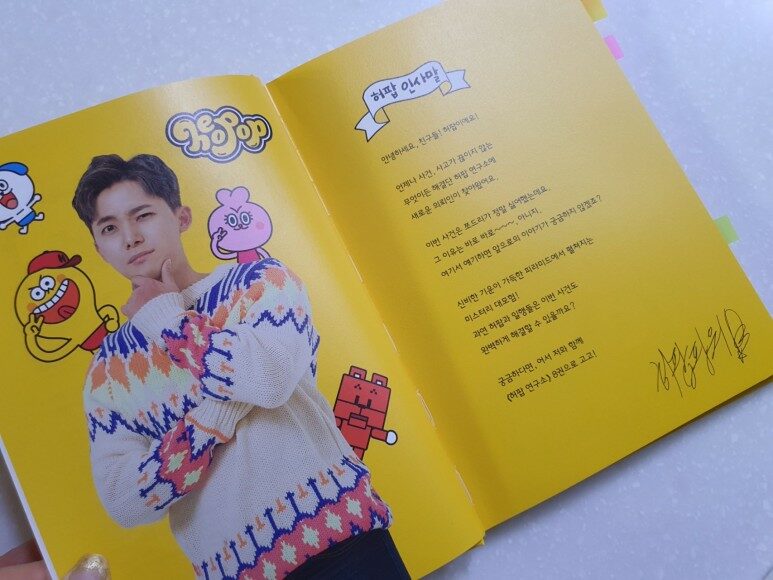 heopop
허팝 인사말
안녕하세요, 친구들! 허팝이에요!
언제나 사건, 사고가 끊이지 않는
무엇이든 해결단 허팝 연구소에
새로운 의뢰인이 찾아왔어요.
이번 사건은 쪼드리가 정말 싫어했는데요.
그 이유는 바로 바로~~~~, 아니지.
여기서 얘기하면 앞으로의 이야기가 궁금하지 않겠죠?
신비한 기운이 가득한 피라미드에서 펼쳐지는
미스터리 대모험!
과연 허팝과 일행들은 이번 사건도
완벽하게 해결할 수 있을까요?
궁금하다면, 어서 저와 함께
《허팝 연구소》 8권으로 고고!